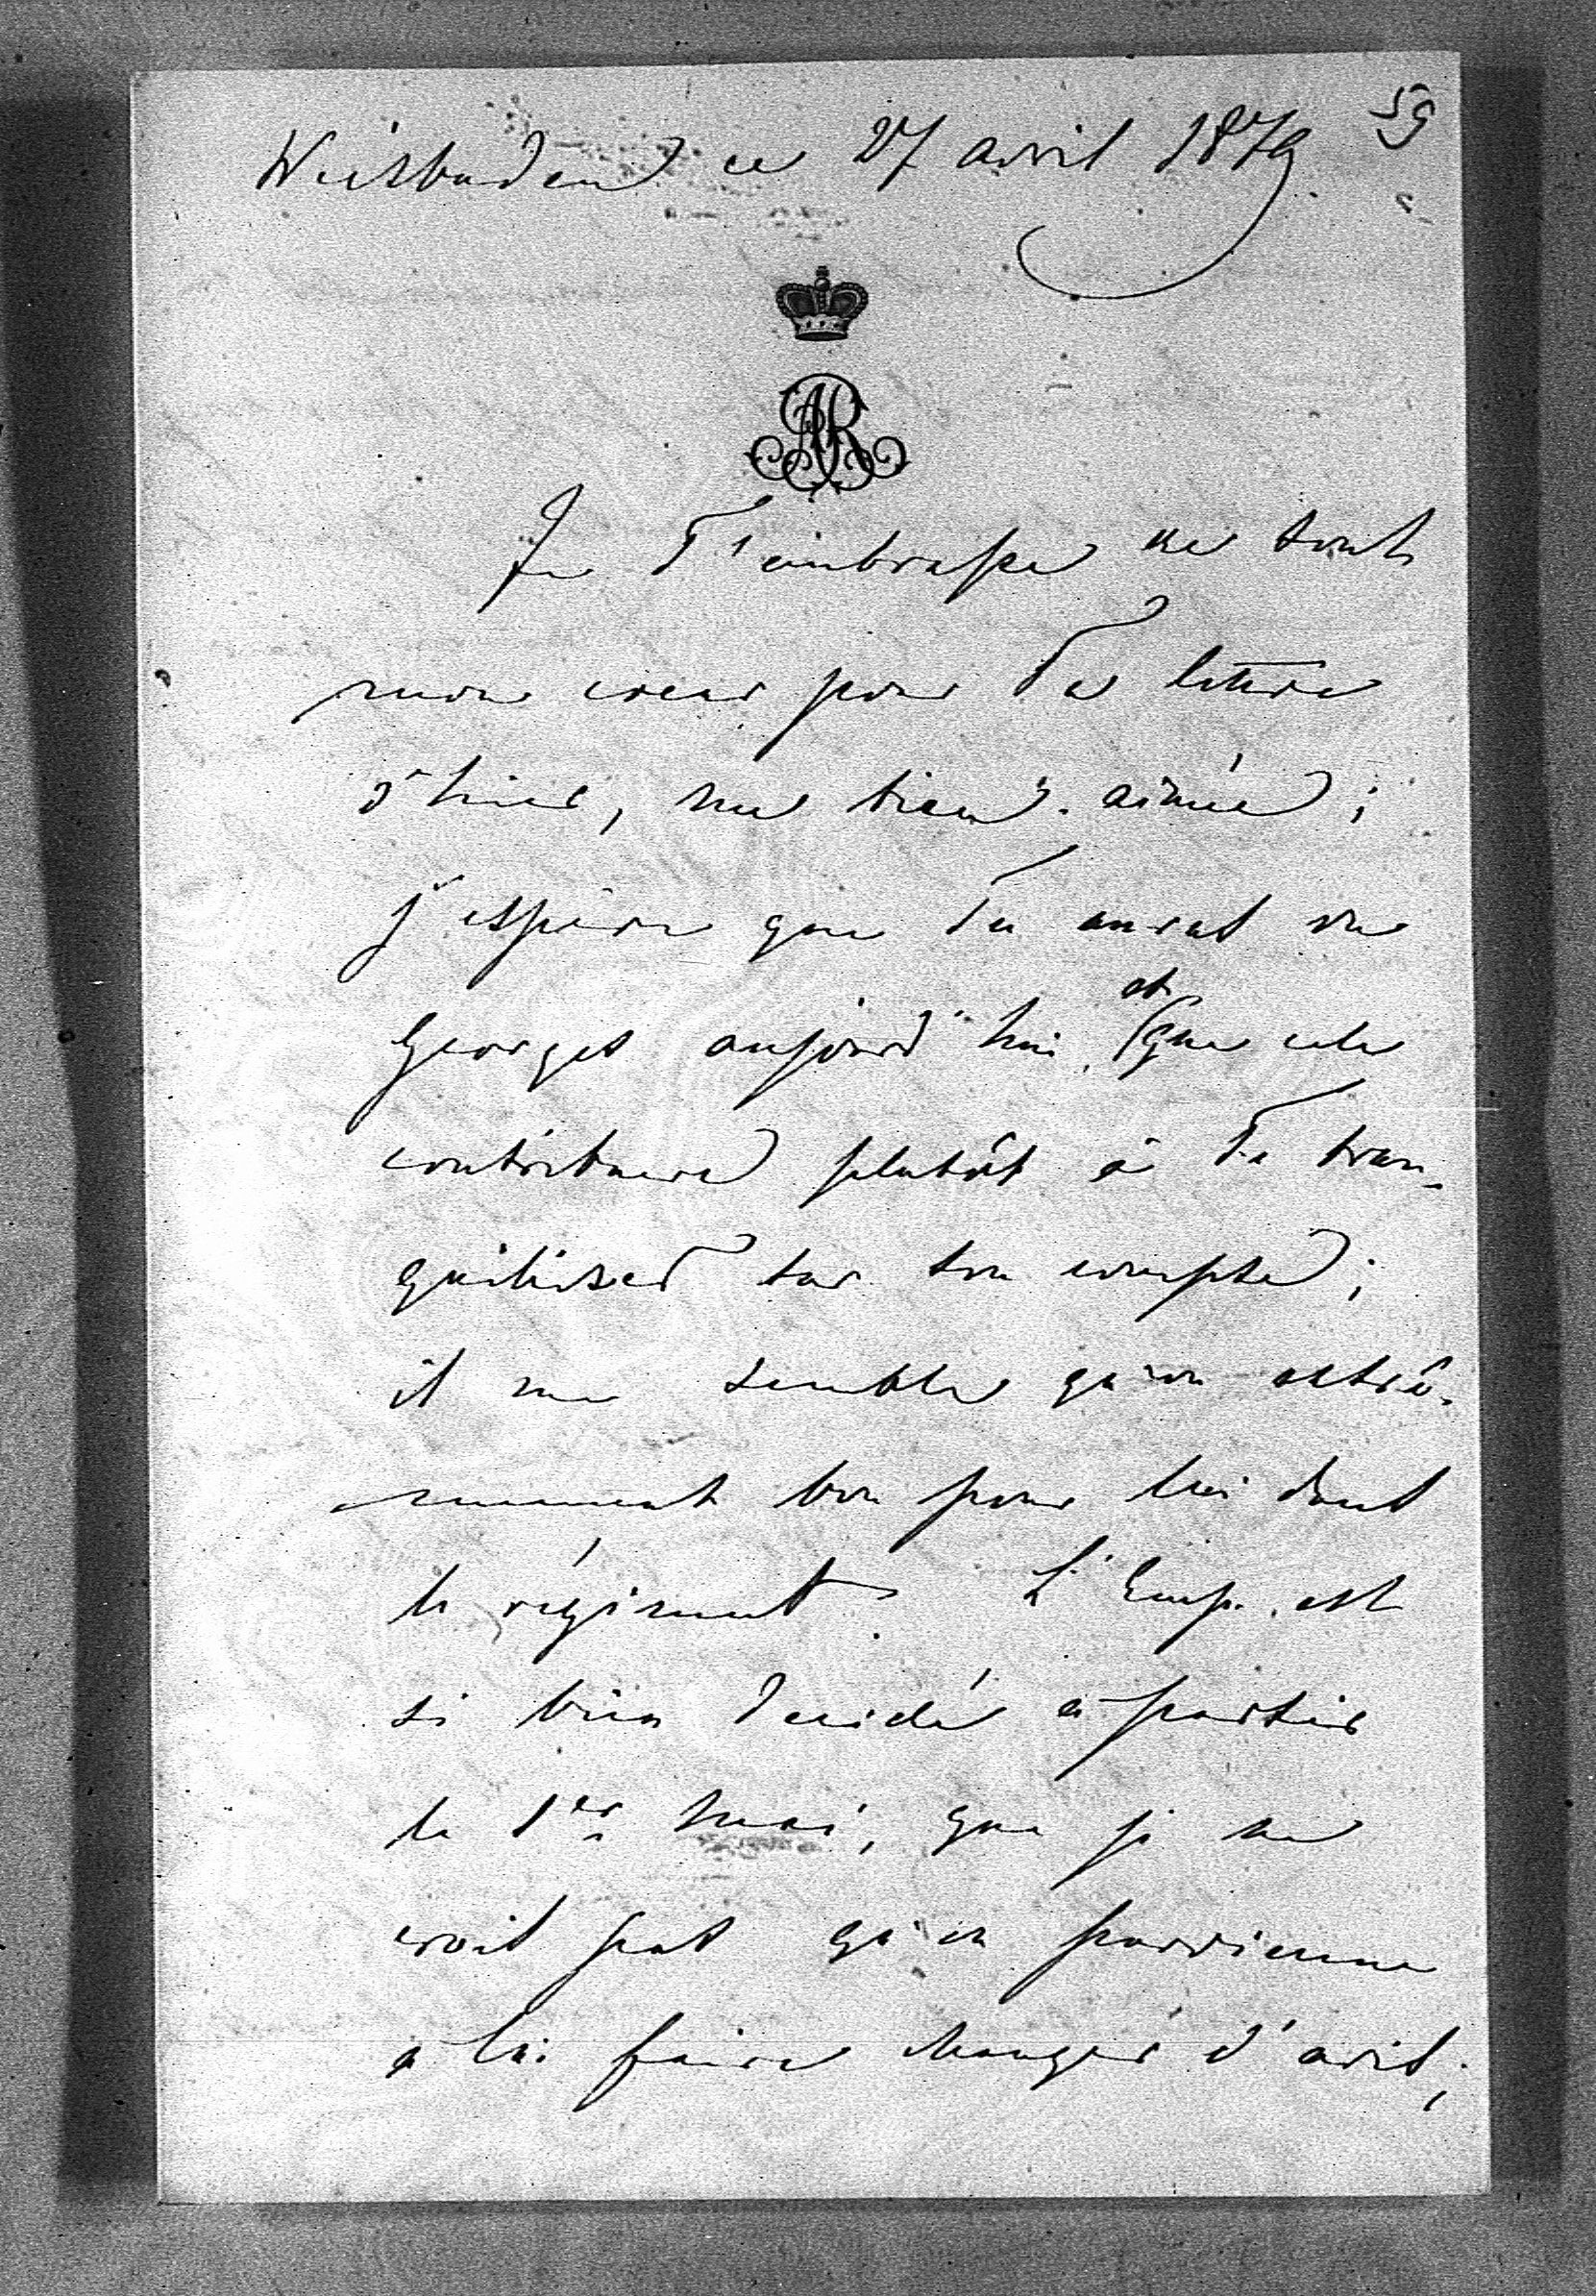 59
Wiesbaden ce 27 avril 1879.
AR
Je T'embrasse de tout
mon coeur pour Ta lettre
d'hier, ma bien-aimée;
j'espère que Tu auras vu
Georges aujourd'hui, et que cela
contribuera plutôt à Te tran-
quiliser sur son compte;
il me semble qu'on extrê-
mement bon pour lui dans
le régiment. L'Emp. est
si bien decidé à partir
le 1er Mai, que je ne
crois pas qu'on parvienne
a lui faire changer d'avis;